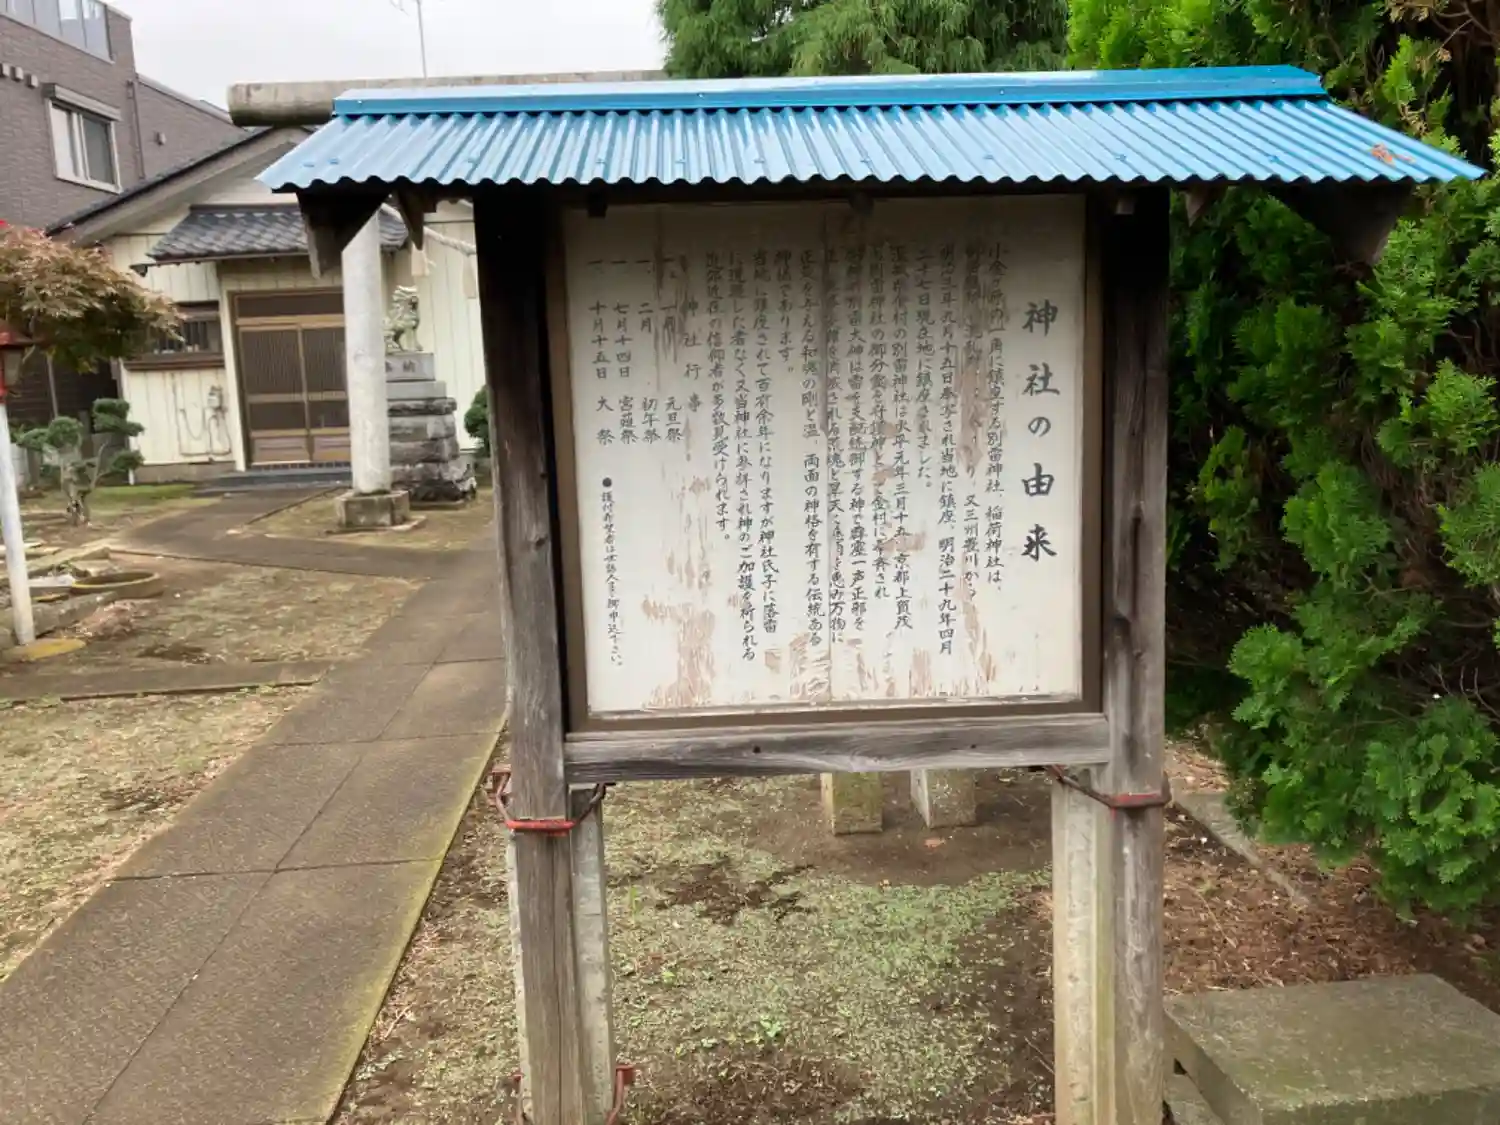 神社の由来
小金ヶ原の一角に鎮座する別雷神社、稲荷神社は、
り、又三州豊川から
明治三年九月十五日奉寄され当地に鎮座。明治二十九年四月
二十七日現在地に鎮座されました。
金村の別雷神社は天平元年三月十五 京都上賀茂
別雷神社の御分霊を守護神として金村に奉斎され
別雷大神は雷を支配統御する神で霹靂一声正邪を
され 荒魂と旱天に慈雨を恵み万物に
正気を与える和魂の剛と温、両面の神格を有する伝統ある
神様であります。
当地に鎮座されて百有余年になりますが神社氏子に落雷
に遭遇した者なく又当神社に参拝され神のご加護を祈られる
近在の信仰者が多数見受けられます。
神社行事
一、一月 元旦祭
一、二月 初午祭
一 七月十四日 宮薙祭
一 十月十五日 大祭
●護付希望者は世話人まで御申込下さい。